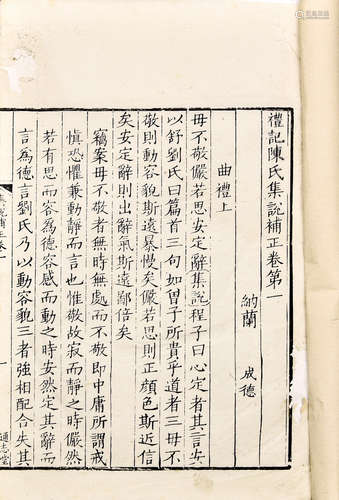 禮記陳氏集說補正卷第一
納蘭 成德
曲禮上
毋不敬儼若思安定辭集說程子曰心定者其言安
以舒劉氏曰篇首三句如曾子所貴乎道者三毋不
敬則動容貌斯遠暴慢矣儼若思則正顏色斯近信
矣安定辭則出辭氣斯遠鄙倍矣
竊案毋不敬者無時無處而不敬即中庸所謂戒
慎恐懼兼動靜而言也惟敬故寂而靜之時儼然
若有思而容為德容感而動之時安然定其辭而
言為德言劉氏乃以動容貌三者強相配合失其
通志堂